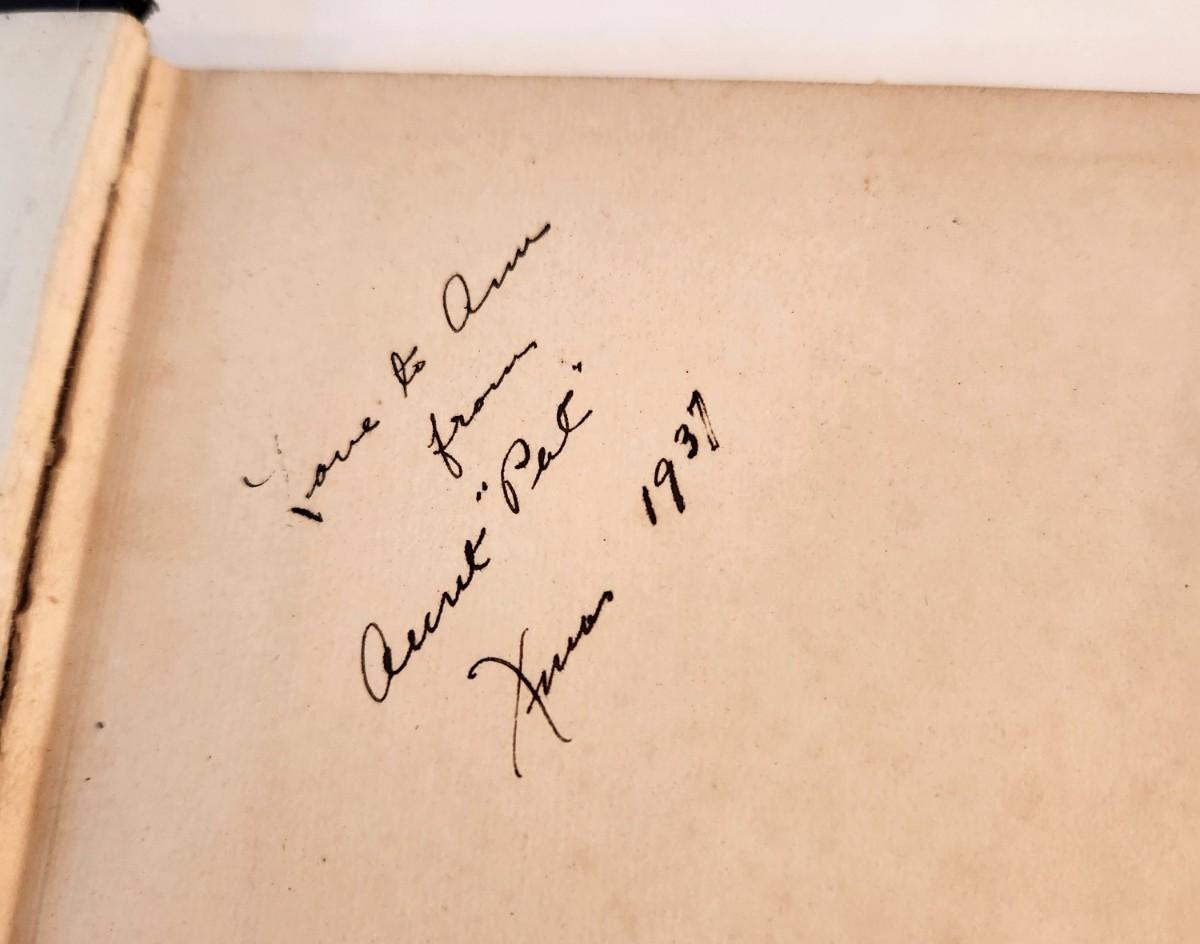 Love to Ann
from
Aunt "Pat"
Xmas 1937